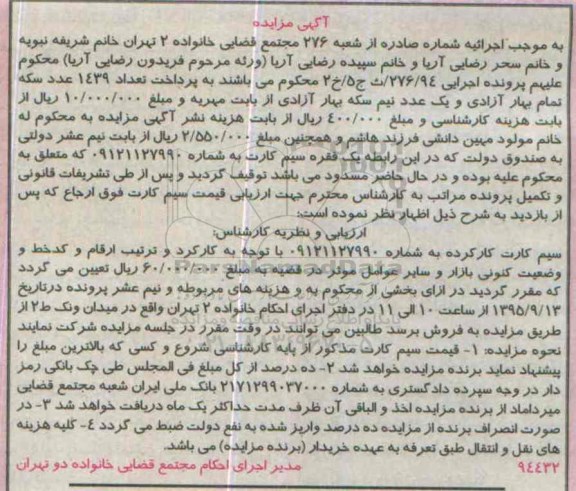 آگهی مزایده
به موجب اجرائیه شماره صادره از شعبه ۲۷۶ مجتمع قضایی خانواده ۲ تهران خانم شریفه نبویه
و خانم سحر رضایی آریا و خانم سپیده رضایی آریا (ورثه مرحوم فریدون رضایی آریا) محکوم
علیهم پرونده اجرایی ۲۷۶/۹٤/ث ج۵/خ۲ محکوم می باشند به پرداخت تعداد ۱٤۳۹ عدد سکه
تمام بهار آزادی و یک عدد نیم سکه بهار آزادی از بابت مهریه و مبلغ ۱۰/۰۰۰/۰۰۰ ریال از
بابت هزینه کارشناسی و مبلغ ٤۰۰/۰۰۰ ریال از بابت هزینه نشر آگهی مزایده به محکوم له
خانم مولود مهین دانشی فرزند هاشم و همچنین مبلغ ۲/۵۵۰/۰۰۰ ریال از بابت نیم عشر دولتی
به صندوق دولت که در این رابطه یک فقره سیم کارت به شماره ۰۹۱۲۱۱۲۷۹۹۰ که متعلق به
محکوم علیه بوده و در حال حاضر مسدود می باشد توقیف گردید و پس از طی تشریفات قانونی
و تکمیل پرونده مراتب به کارشناس محترم جهت ارزیابی قیمت سیم کارت فوق ارجاع که پس
از بازدید به شرح ذیل اظهار نظر نموده است:
ارزیابی و نظریه کارشناس:
سیم کارت کارکرده به شماره ۰۹۱۲۱۱۲۷۹۹۰ با توجه به کارکرد و ترتیب ارقام و کدخط و
وضعیت کنونی بازار و سایر عوامل موثر در قضیه به مبلغ ۶۰/۰۰۰/۰۰۰ ریال تعیین می گردد
که مقرر گردید در ازای بخشی از محکوم به و هزینه های مربوطه و نیم عشر پرونده درتاریخ
۱۳۹۵/۹/۱۳ از ساعت ۱۰ الی ۱۱ در دفتر اجرای احکام خانواده ۲ تهران واقع در میدان ونک ط۲ از
طریق مزایده به فروش برسد طالبین می توانند در وقت مقرر در جلسه مزایده شرکت نمایند
نحوه مزایده: ۱- قیمت سیم کارت مذکور از پایه کارشناسی شروع و کسی که بالاترین مبلغ را
پیشنهاد نماید برنده مزایده خواهد شد ۲- ده درصد از کل مبلغ فی المجلس طی چک بانکی رمز
دار در وجه سپرده دادگستری به شماره ۲۱۷۱۲۹۹۰۳۷۰۰۰ بانک ملی ایران شعبه مجتمع قضایی
میرداماد از برنده مزایده اخذ و الباقی آن ظرف مدت حداکثر یک ماه دریافت خواهد شد ۳- در
صورت انصراف برنده از مزایده ده درصد واریز شده به نفع دولت ضبط می گردد ٤- کلیه هزینه
های نقل و انتقال طبق تعرفه به عهده خریدار (برنده مزایده) می باشد.
مدیر اجرای احکام مجتمع قضایی خانواده دو تهران
۹٤٤۳۲